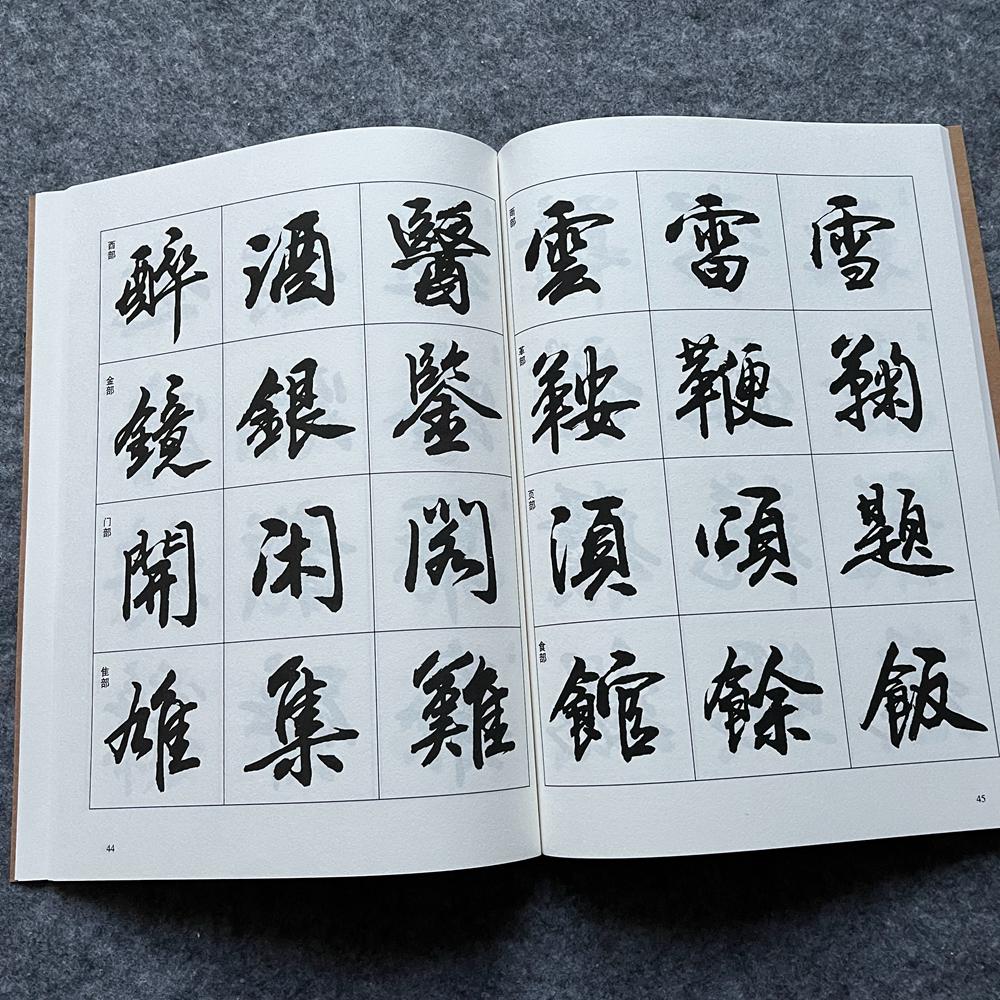 酉部
醉 酒 醫
金部
鏡 銀 鑒
门部
開 閑 閣
隹部
雄 集 雞
44
雨部
雲 雷 雪
革部
鞍 鞭 鞠
页部
須 頌 題
食部
館 餘 飯
45